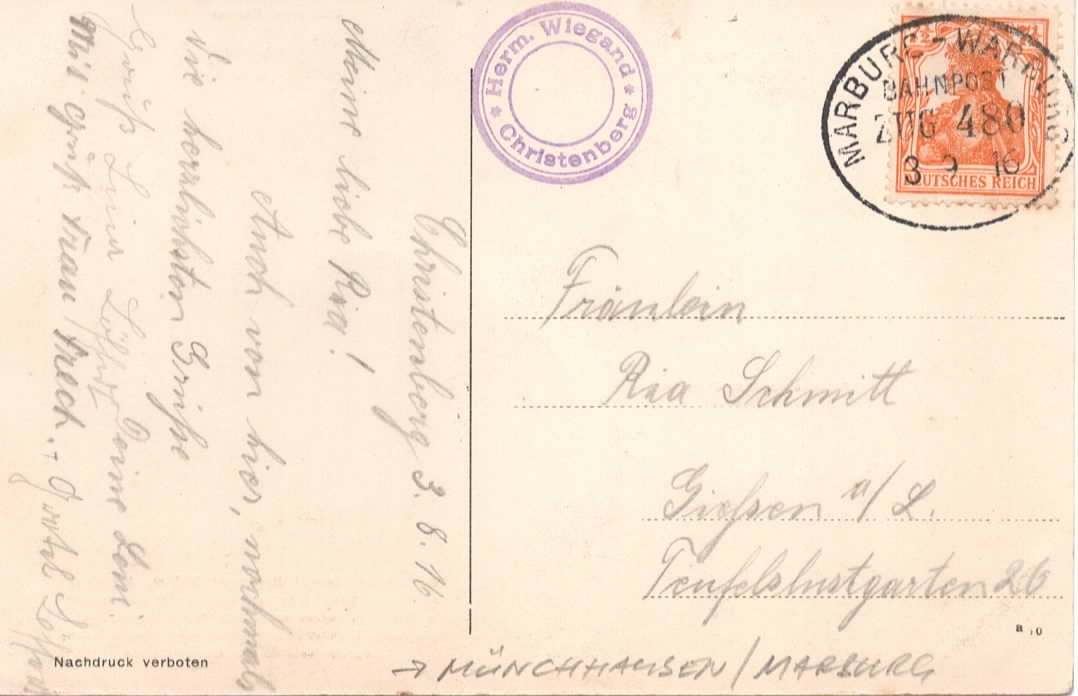 Herm. Wiegand
Christenberg
MARBURG - WARBURG
BAHNPOST
ZUG 480
3 9 16
7½
DEUTSCHES REICH
Christenberg 3. 8. 16.
Meine liebe Ria!
Auch von hier, nochmals
die herzlichsten Grüße
Deine Leni.
Gruß
Mit Gruß Frau
Fräulein
Ria Schmitt
Gießen a/L.
Teufelslustgarten 26
a 10
Nachdruck verboten
→ MÜNCHHAUSEN / MARBURG